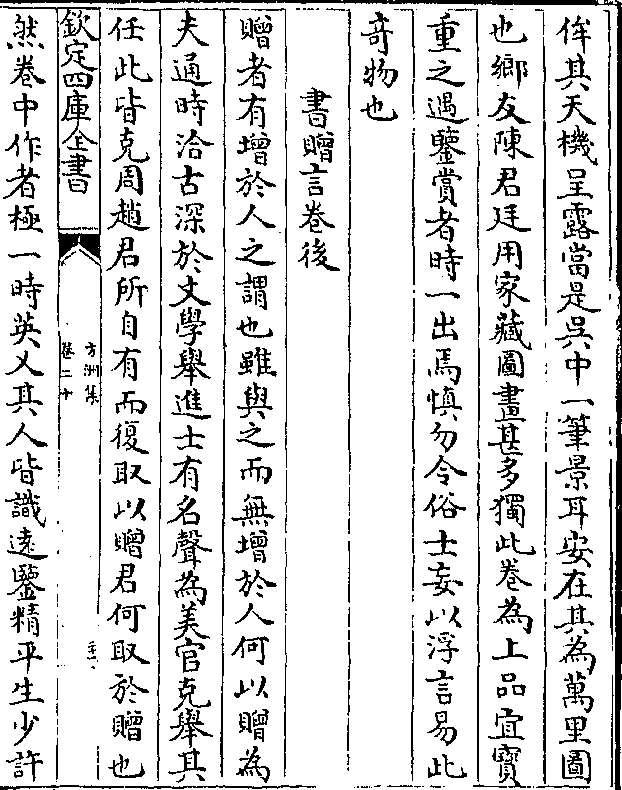 侔其天機呈露當是吳中一筆景耳安在其為萬里圖
也鄉友陳君廷用家藏圖畫甚多獨此卷為上品宜寶
重之遇鑒賞者時一出焉慎勿令俗士妄以浮言易此
竒物也
書贈言卷後
贈者有增於人之謂也雖與之而無增於人何以贈為
夫通時洽古深於文學舉進士有名聲為美官克舉其
任此皆克周趙君所自有而復取以贈君何取於贈也
欽定四庫全書
方洲集
卷二十
然卷中作者極一時英乂其人皆識遠鑒精平生少許